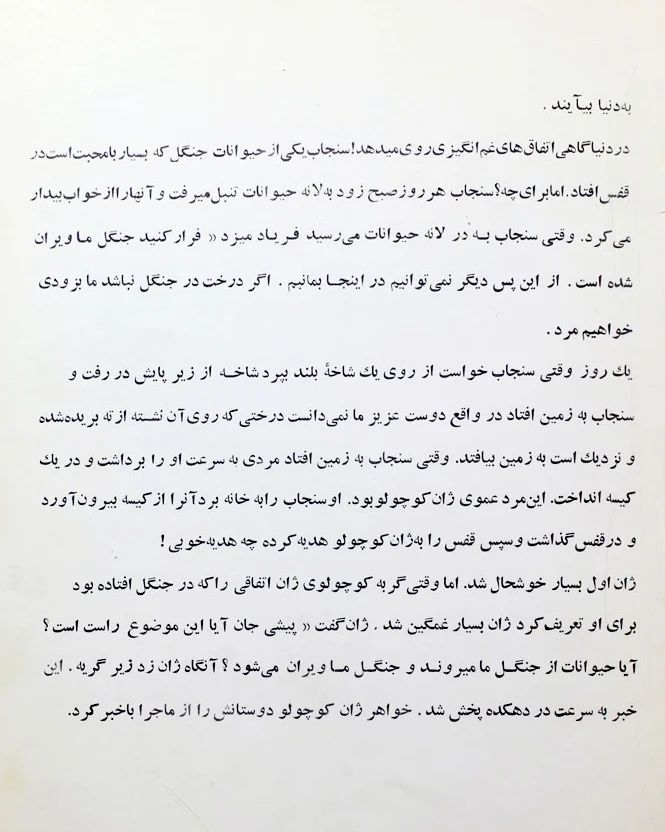 به‌دنیا بیآیند .
در دنیا گاهی اتفاق‌های غم‌انگیزی روی میدهد! سنجاب یکی از حیوانات جنگل که بسیار با محبت است در
قفس افتاد. اما برای چه؟ سنجاب هر روز صبح زود به لانه حیوانات تنبل میرفت و آنهارا از خواب بیدار
می‌کرد. وقتی سنجاب بـه در لانه حیوانات می‌رسید فریاد میزد « فرار کنید جنگل ما ویران
شده است . از این پس دیگر نمی‌توانیم در اینجـا بمانیم . اگر درخت در جنگل نباشد ما بزودی
خواهیم مرد .
یك روز وقتی سنجاب خواست از روی یك شاخهٔ بلند بپرد شاخـه از زیر پایش در رفت و
سنجاب به زمین افتاد در واقع دوست عزیز ما نمی‌دانست درختی که روی آن نشسته از ته بریده شده
و نزدیك است به زمین بیافتد. وقتی سنجاب به زمین افتاد مردی به سرعت او را برداشت و در یك
کیسه انداخت. این‌مرد عموی ژان کوچولو بود. او سنجاب را به خانه برد آنرا از کیسه بیرون آورد
و در قفس گذاشت و سپس قفس را به ژان کوچولو هدیه کرد ه چه هدیه خوبی !
ژان اول بسیار خوشحال شد. اما وقتی گربه کوچولوی ژان اتفاقی را که در جنگل افتاده بود
برای او تعریف کرد ژان بسیار غمگین شد . ژان گفت « پیشی جان آیا این موضوع راست است ؟
آیا حیوانات از جنگـل ما میروند و جنگـل مـا ویران می‌شود ؟ آنگاه ژان زد زیر گریه . این
خبر به سرعت در دهکده پخش شد . خواهر ژان کوچولو دوستانش را از ماجرا باخبر کرد.